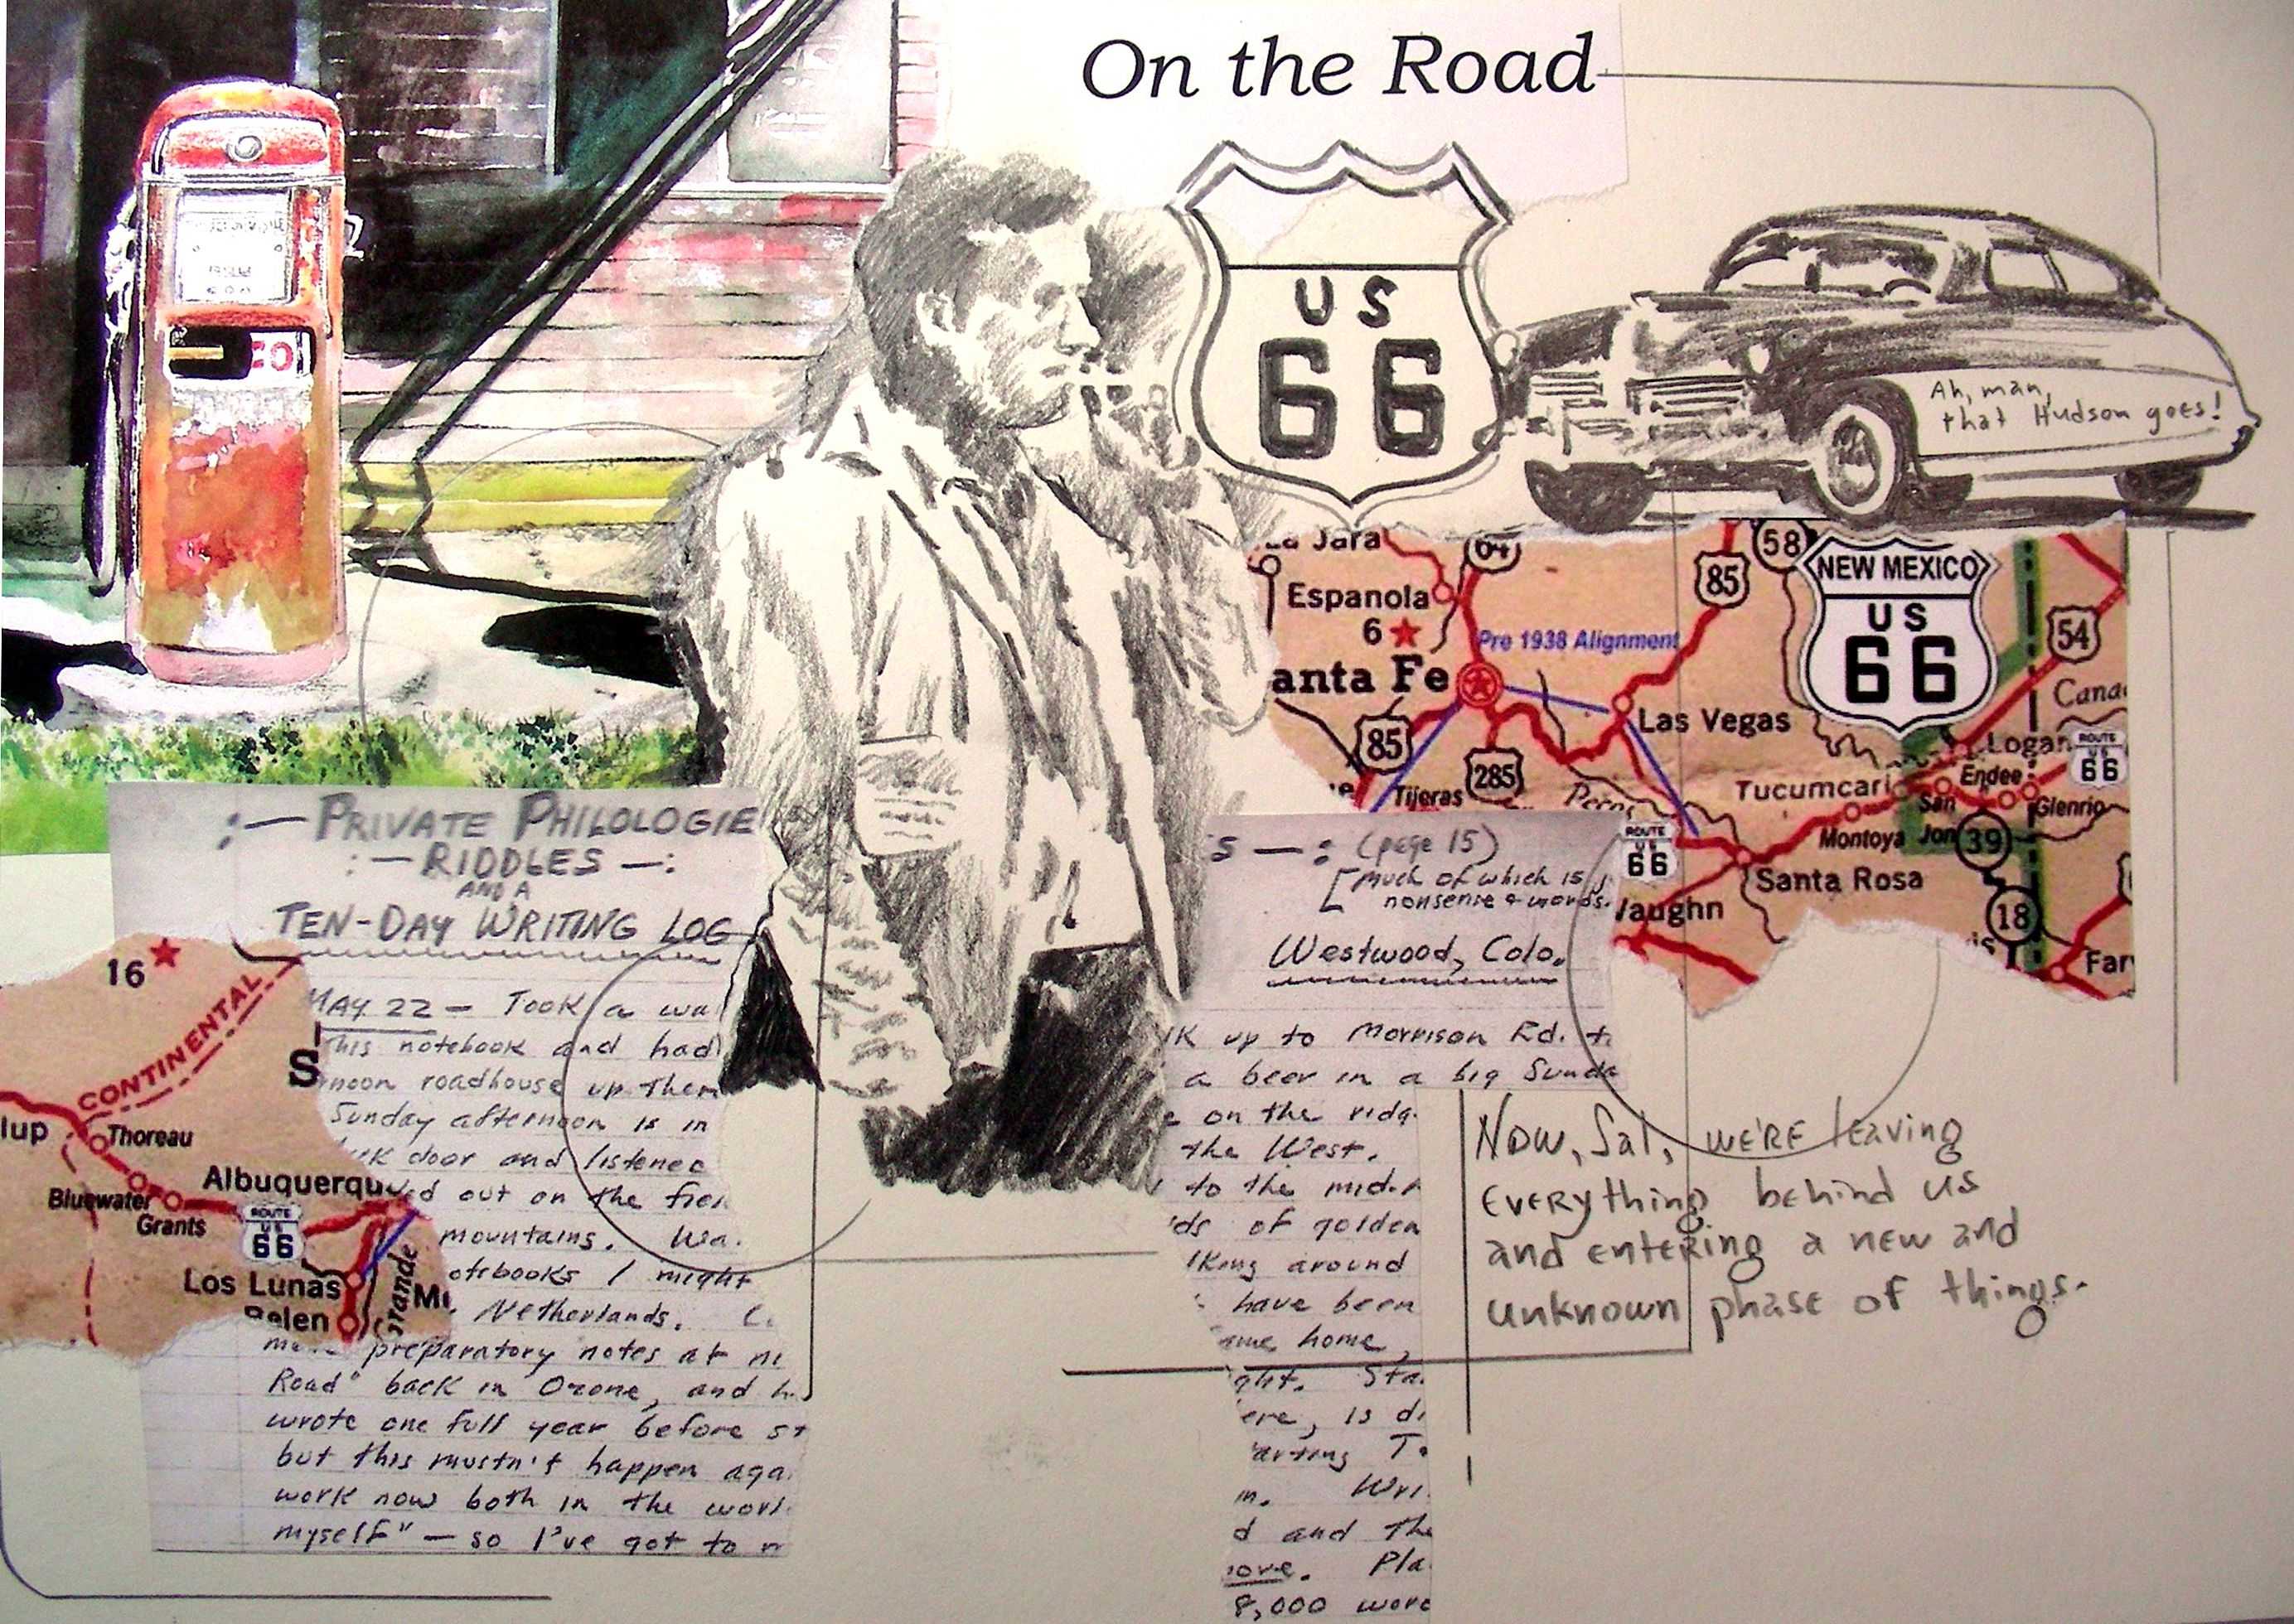 On the Road
US
66
Ah, man,
that Hudson goes!
La Jara
64
58
Espanola
85
NEW MEXICO
US
66
6
Pre 1938 Alignment
54
anta Fe
Las Vegas
85
285
Logan
ROUTE
US
66
Tijeras
Pecos
Tucumcari
Endee
San
Jon
Glenrio
Montoya
39
ROUTE
US
66
Santa Rosa
Vaughn
18
Far
:— PRIVATE PHILOLOGIE
:— RIDDLES —:
AND A
TEN-DAY WRITING LOG
MAY 22 — Took a wa
This notebook and had
rnoon roadhouse up them
Sunday afternoon is in
door and listened
out on the fiel
mountains. Wa
otebooks I might
Netherlands.
preparatory notes at
Road" back in Ozone, and h
wrote one full year before st
but this mustn't happen aga
work now both in the worl
myself" — so I've got to
S —: (page 15)
[much of which is
nonsense & words.
Westwood, Colo.
lk up to Morrison Rd. t
a beer in a big Sunda
e on the ridg
the West.
to the mid
ds of golden
lking around
have been
ome home,
ght. Sta
ere, is di
arting To
m. Wri
d and the
ove. Pla
8,000 word
16
CONTINENTAL
S
lup
Thoreau
Bluewater
Grants
Albuquerqu
ROUTE
US
66
Los Lunas
Belen
rande
Now, Sal, we're leaving
everything behind us
and entering a new and
unknown phase of things.